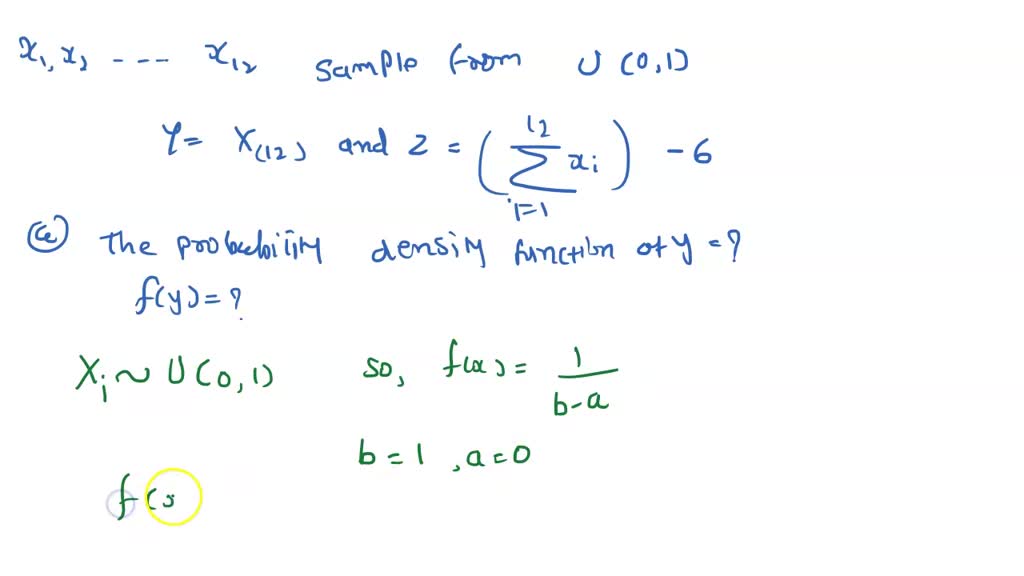 x₁, x₂ ---- x₁₂ sample from U (0,1)
Y = X₍₁₂₎ and Z = ( 12 Σ i=1 xᵢ ) - 6
(a) The probability density function of y = ?
f(y) = ?
Xᵢ ~ U(0,1) so, f(x) = 1 / b-a
b = 1 , a = 0
f(x